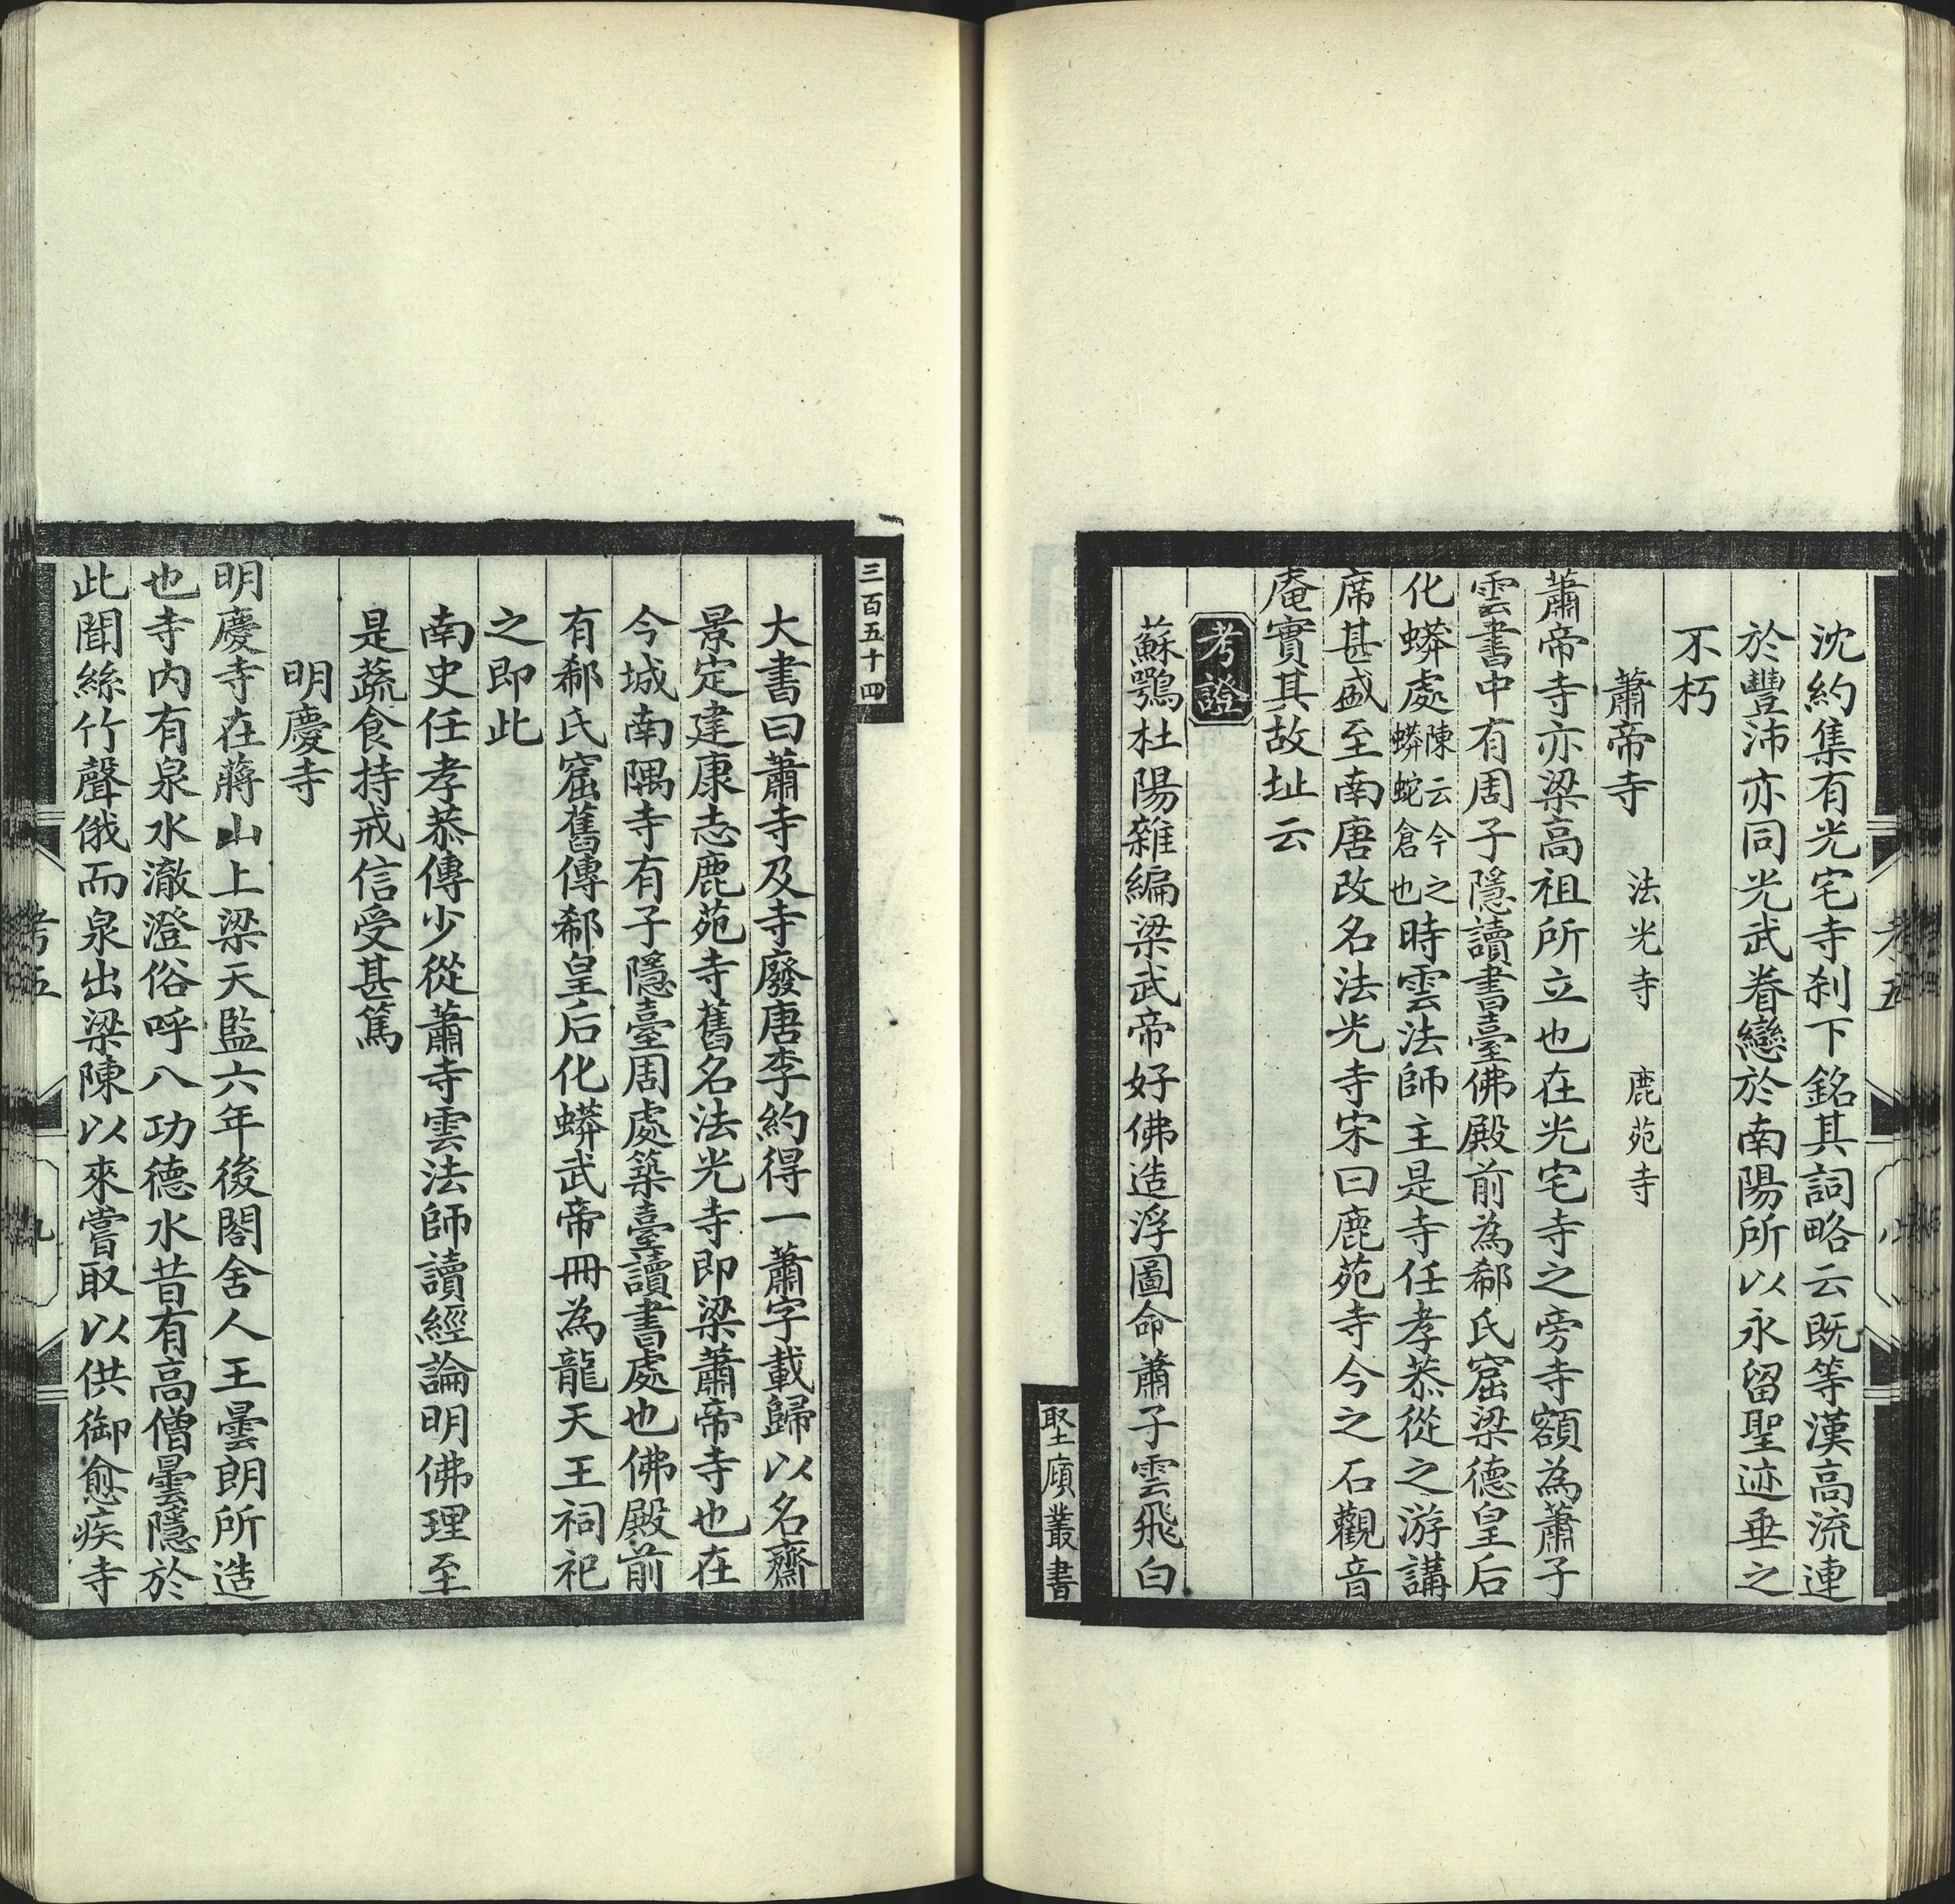 沈約集有光宅寺刹下銘其詞略云既等漢高流連
於豐沛亦同光武眷戀於南陽所以永留聖迹垂之
不朽
蕭帝寺 法光寺 鹿苑寺
蕭帝寺亦梁高祖所立也在光宅寺之旁寺額為蕭子
雲書中有周子隱讀書臺佛殿前為郗氏窟梁德皇后
化蟒處陳云今之蟒蛇倉也時雲法師主是寺任孝恭從之游講
席甚盛至南唐改名法光寺宋曰鹿苑寺今之石觀音
庵實其故址云
考證
蘇鶚杜陽雜編梁武帝好佛造浮圖命蕭子雲飛白
聖廎叢書
三百五十四
大書曰蕭寺及寺廢唐李約得一蕭字載歸以名齋
景定建康志鹿苑寺舊名法光寺即梁蕭帝寺也在
今城南隅寺有子隱臺周處築臺讀書處也佛殿前
有郗氏窟舊傳郗皇后化蟒武帝冊為龍天王祠祀
之即此
南史任孝恭傳少從蕭寺雲法師讀經論明佛理至
是蔬食持戒信受甚篤
明慶寺
明慶寺在蔣山上梁天監六年後閣舍人王曇朗所造
也寺内有泉水澈澄俗呼八功德水昔有高僧曇隱於
此聞絲竹聲俄而泉出梁陳以來嘗取以供御愈疾寺
考五
九